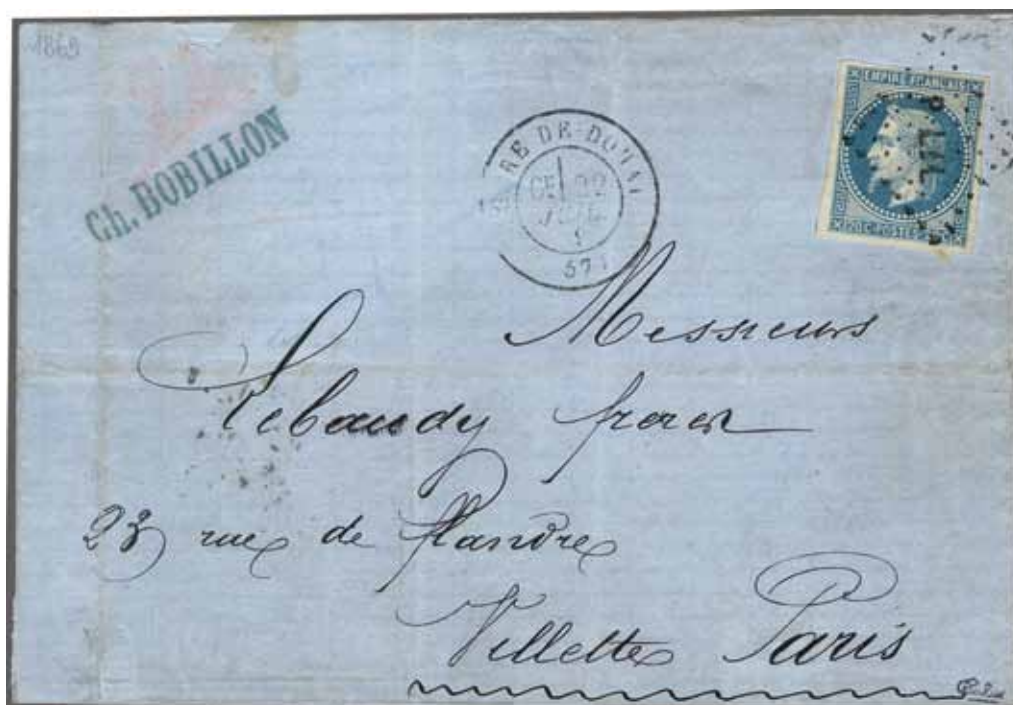 1869
Ch. BOBILLON
RE-DE-DOUAI
22
EMPIRE FRANÇAIS
20 C POSTES 20 C
Messieurs
Lebaudy freres
23 rue de Flandre
Villette Paris